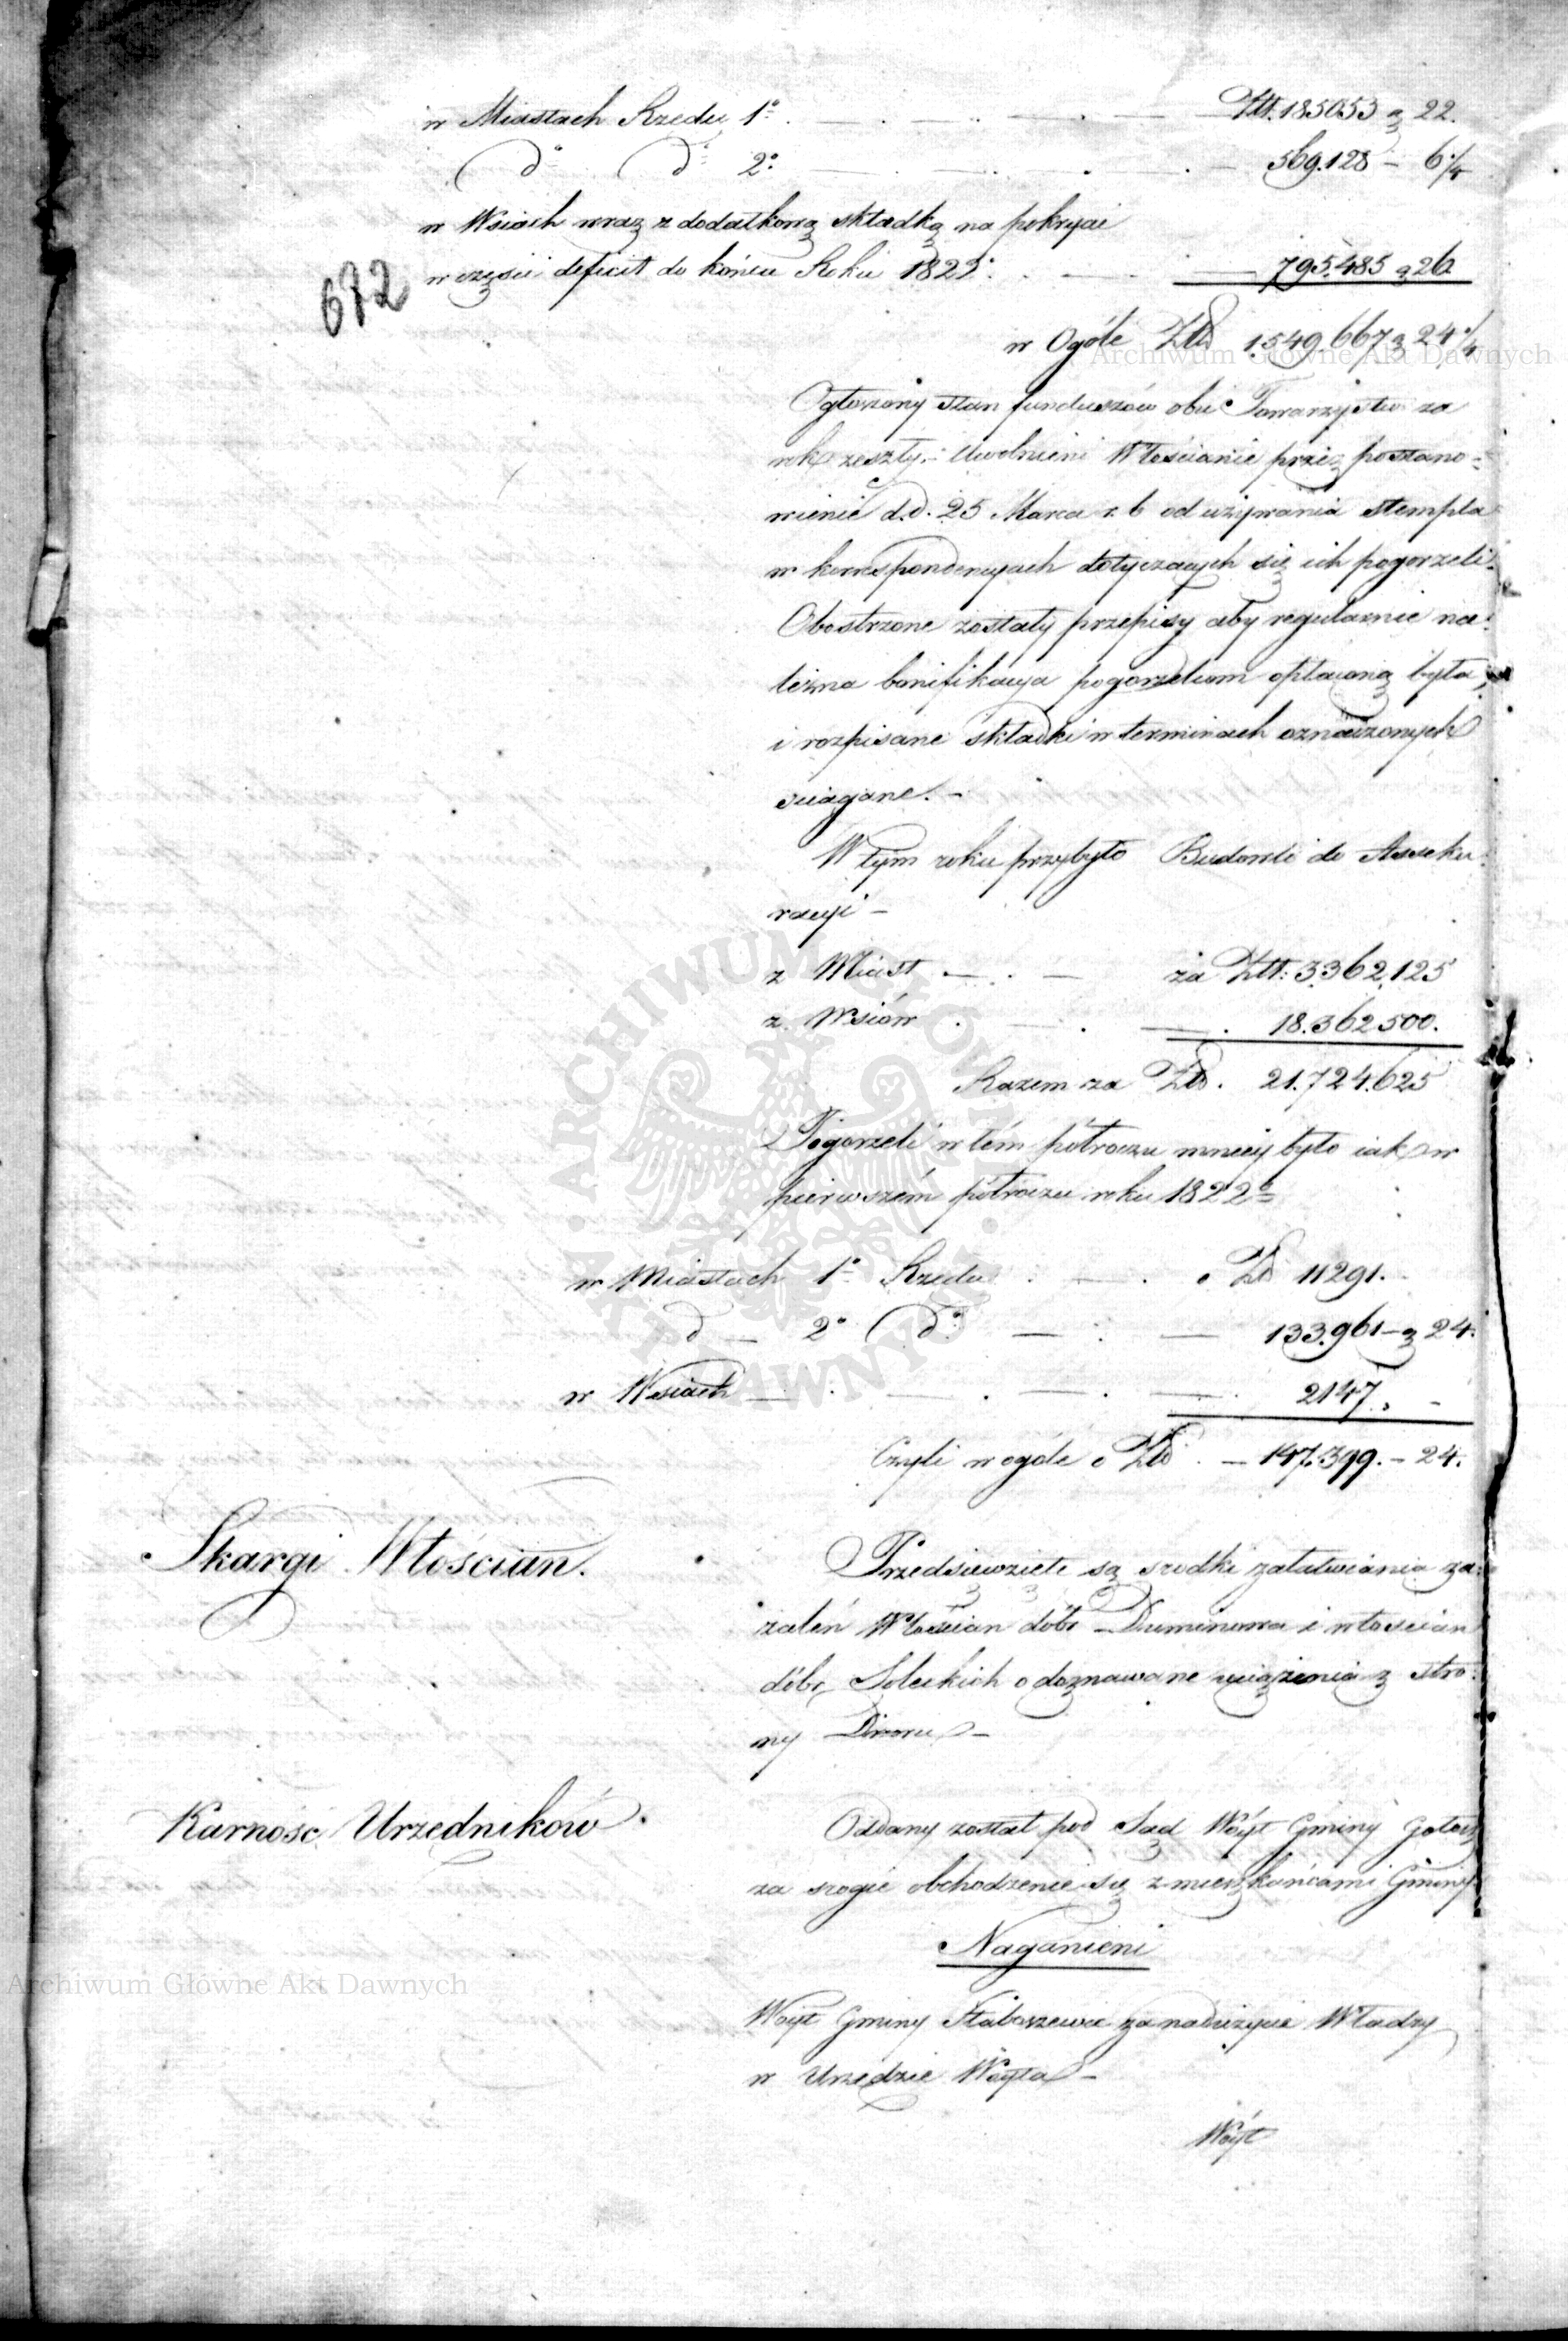 w Miastach Rzędu 1º . — . — . — . — Złł. 185053 g 22.
dº dº 2º — . — . — . — 569.128 — 6 1/4
w Wsiach wraz z dodatkową składką na pokrycie
w części deficit do końca Roku 1822º . — 795.485 g 26
672
w Ogóle Złł 1.549.667 g 24 1/4
Ogłoszony stan funduszów obu Towarzystw za
rok zeszły. – Uwolnieni Włościanie przez postano-
wienie d.d. 25 Marca r. b od używania stempla
w korrespondencyach dotyczących się ich pogorzeli.
Obostrzone zostały przepisy aby regularnie na:
leżna bonifikacya pogorzelcom opłaconą była,
i rozpisane składki w terminach oznaczonych
sciągane. –
W tym roku przybyło Budowli do Asseku:
racyi –
z Miast — . — za Złł: 3.362.125
z Wsiów . — . — . 18.362.500.
Razem za Złł. 21.724.625
Pogorzeli w tém półroczu mniéy było iak w
pierwszém półroczu roku 1822º
w Miastach 1º Rzędu . — . o Zł 11291.
d — 2º dº — : — 133.961 — g 24.
w Wsiach — . — . — . — . 2147. „ –
Czyli w ogóle o Złł . — 147.399. – 24.
Skargi Włościan.
Przedsięwzięte są srodki załatwiania za:
żaleń Włościan dóbr i włościan
dóbr Soleckich o doznawane uciążenia z stro:
ny Dworu –
Karność Urzędników.
Oddany został pod Sąd Wóyt Gminy
za srogie obchodzenie się z mieszkańcami Gminy
Naganieni
Woyt Gminy za nadużycie Władzy
w Urzędzie Woyta –
Wóyt
Archiwum Główne Akt Dawnych
Archiwum Główne Akt Dawnych
ARCHIWUM GŁÓWNE AKT DAWNYCH